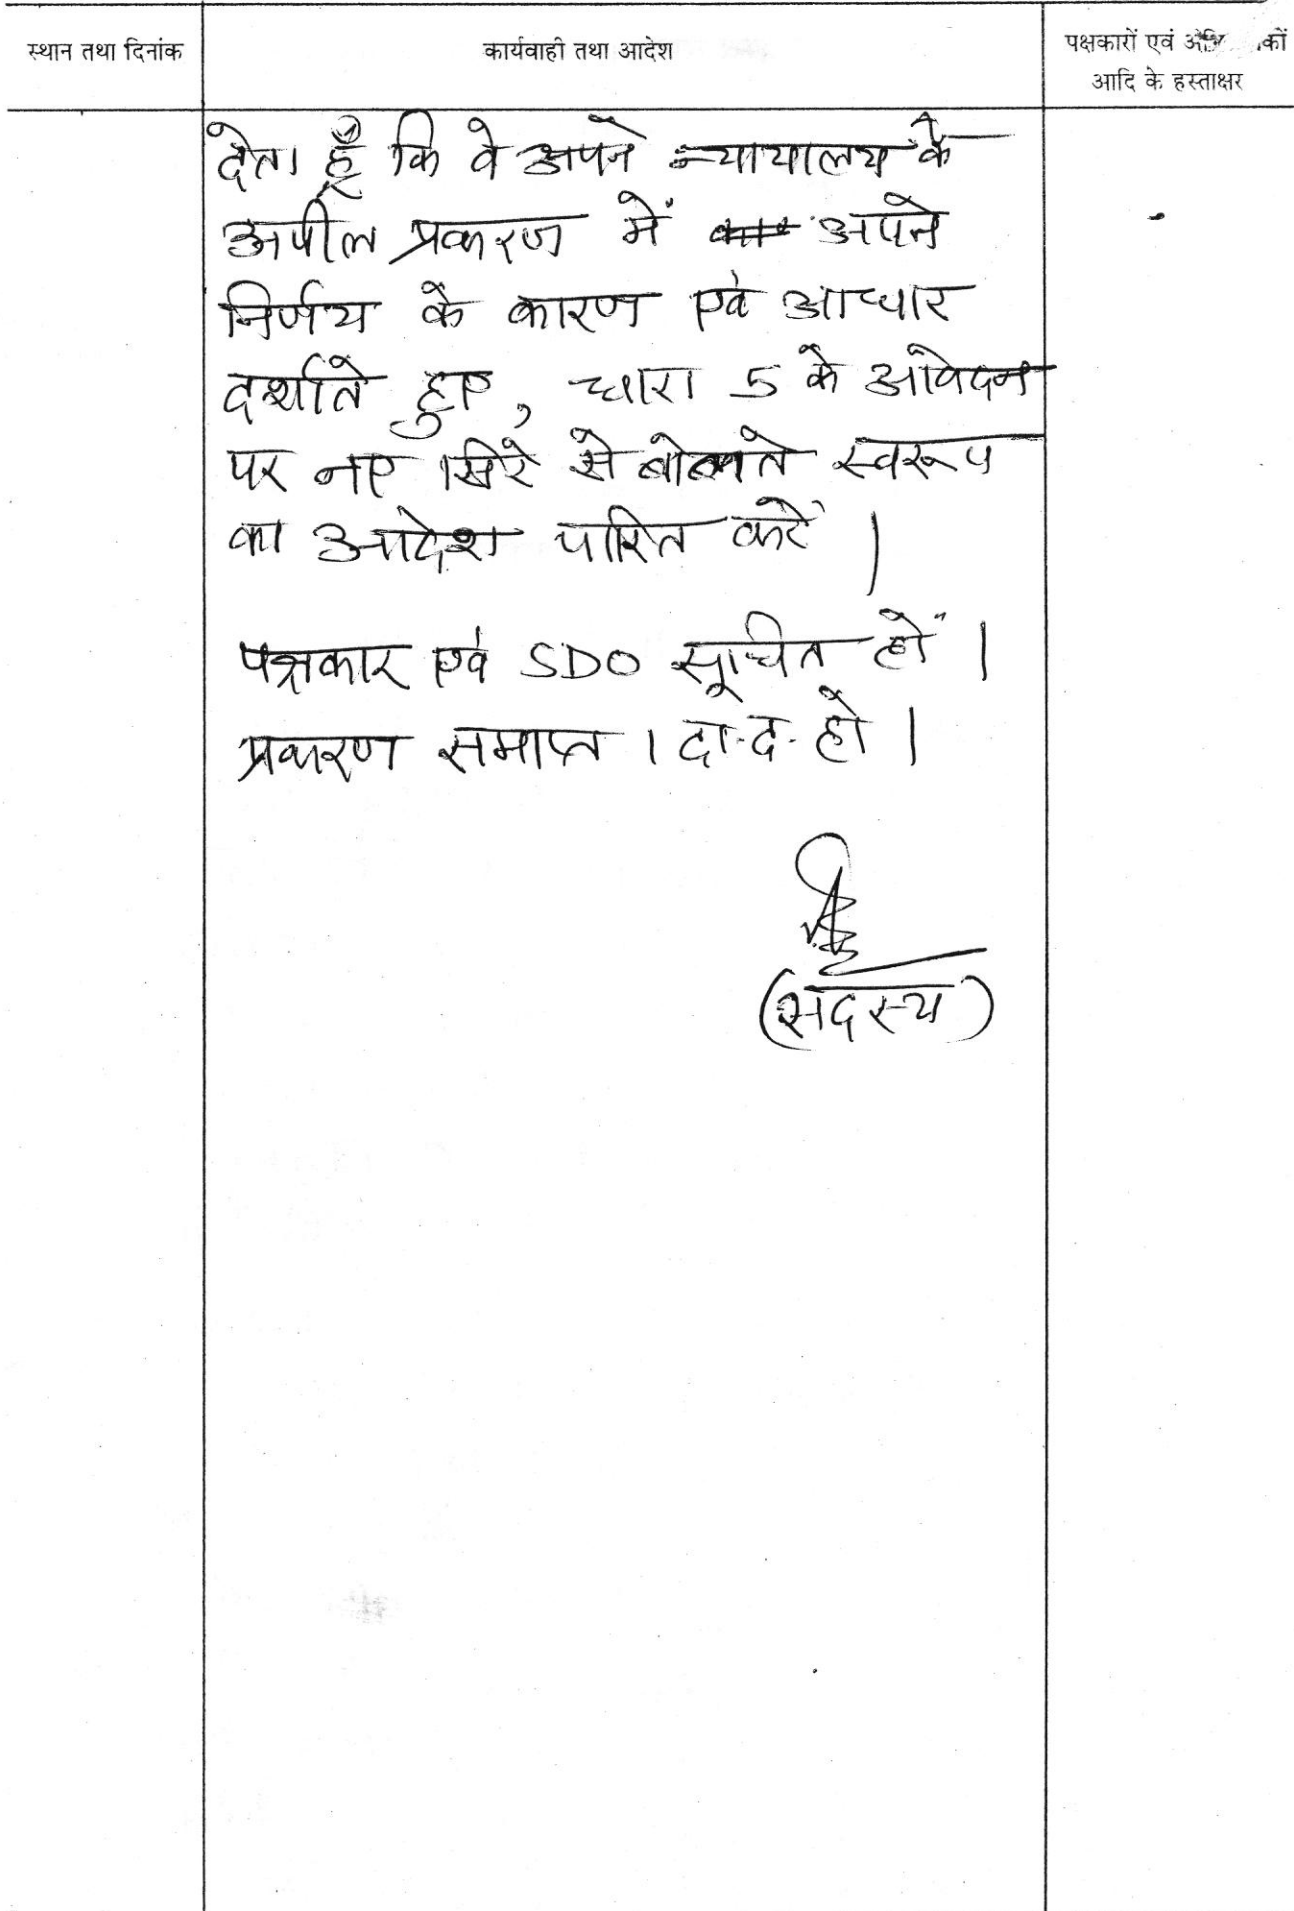 स्थान तथा दिनांक
कार्यवाही तथा आदेश
पक्षकारों एवं
आदि के हस्ताक्षर
देता हूँ कि वे अपने न्यायालय के
अपील प्रकरण में अपने
निर्णय के कारण एवं आधार
दर्शाते हुए, धारा 5 के आवेदन
पर नए सिरे से बोलते स्वरूप
का आदेश पारित करें |
पक्षकार एवं SDO सूचित हों |
प्रकरण समाप्त । दा.द. हो |
(सदस्य)